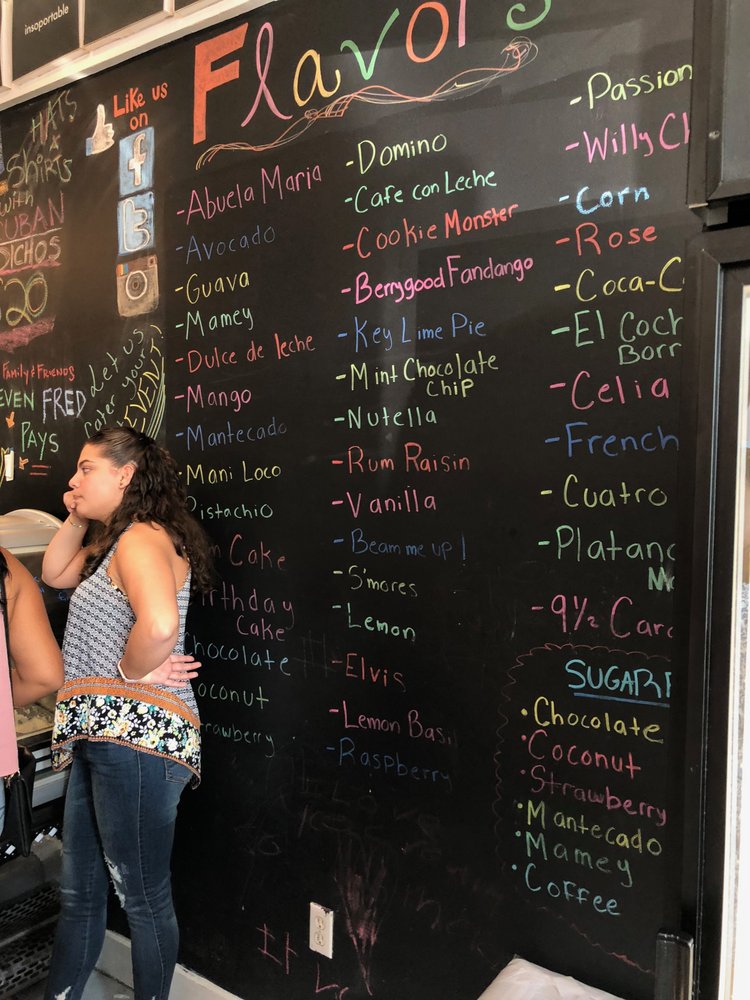 insoportable
Flavors
HATS
&
Shirts
with
CUBAN
DICHOS
$20
Family & Friends
EVEN FRED
PAYS
LIKE us
on
f
t
Let us
cater your
EVENT!
-Abuela Maria
-Avocado
-Guava
-Mamey
-Dulce de leche
-Mango
-Mantecado
-Mani Loco
Pistachio
Cake
Birthday
Cake
Chocolate
Coconut
Strawberry
-Domino
-Cafe con Leche
-Cookie Monster
-Berrygood Fandango
-Key Lime Pie
-Mint Chocolate
Chip
-Nutella
-Rum Raisin
-Vanilla
-Beam me up!
-S'mores
-Lemon
-Elvis
-Lemon Basil
-Raspberry
-Passion
-Willy Ch
-Corn
-Rose
-Coca-C
-El Coch
Borr
-Celia
-French
-Cuatro
-Platano
-9½ Card
SUGAR
•Chocolate
•Coconut
•Strawberry
•Mantecado
•Mamey
•Coffee